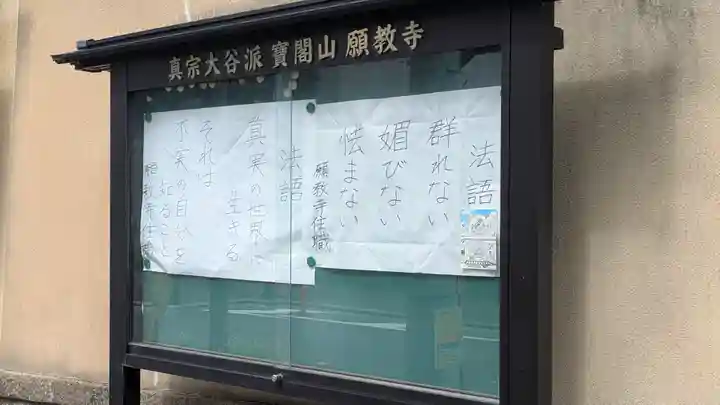 真宗大谷派 寶閣山 願教寺
法語
群れない
媚びない
怯まない
願教寺住職
法語
真実の世界に
生きる
それは
不実の自分を
知ること
願教寺住職